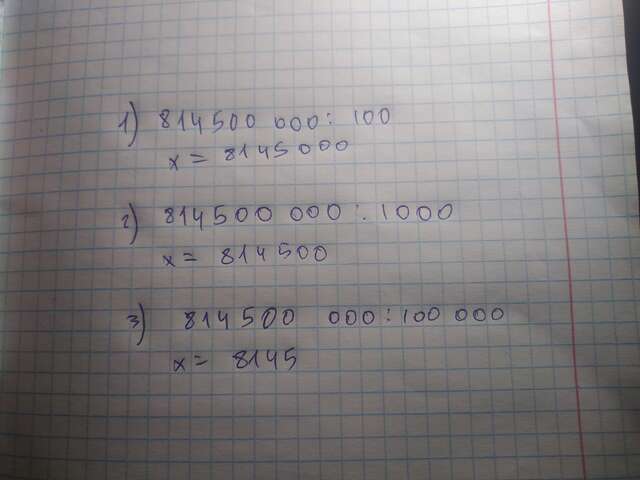 1) 814500 000 : 100
x = 8145000
2) 814500 000 : 1000
x = 814500
3) 814500 000 : 100 000
x = 8145